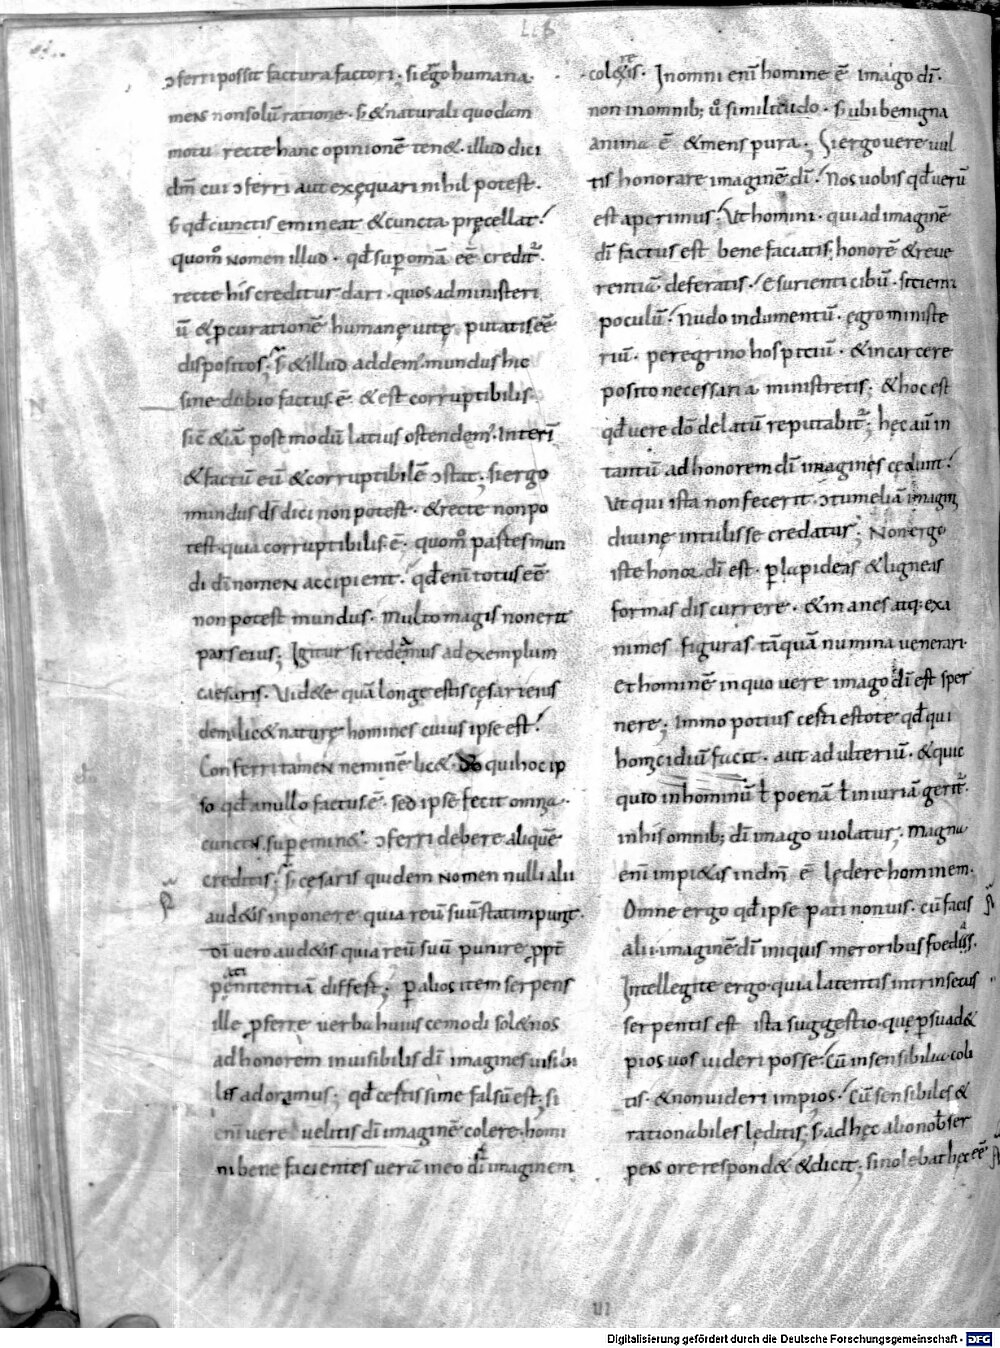 LIB
ↄferri possit factura factori· si ergo humana
mens non solū ratione· s; & naturali quodam
motu recte hanc opinionē ten&· illud dici
dm̄ cui ↄferri aut exęquari nihil potest·
s; qđ cunctis emineat & cuncta pręcellat!
quom̊ nomen illud· qđ sup omā eē credit̃·
recte his creditur dari· quos ad ministeri
ū & pcurationē humanę uitę putatis eē
dispositos; s; & illud addem᾽ mundus hic
sine dubio factus ē· & est corruptibilis·
sic̄ & iā post modū latius ostendem᾽· Interī
& factū eū & corruptibilē ↄstat; si ergo
mundus d̄s dici non potest· & recte non po
test quia corruptibilis ē· quom̊ partes mun
di dī nomen accipient! qđ enī totus eē
non potest mundus· multo magis non erit
pars eius; Igitur si redeamus ad exemplum
caesaris· Uid&e quā longe estis cęsari eius
dem lic& naturę homines cuius ipse est!
Conferri tamen neminē lic&· dō qui hoc ip
so qđ a nullo factus ē· sed ipse fecit omnia·
cunctis supemin&· ↄferri debere aliquē
creditis; s; cesaris quidem nomen nulli alii
aud&is inponere quia reū suū statim punit·
dī uero aud&is quia reū suū punire ppt̄
penitentiā differt; p alios item serpens
ille pferre uerba huiuscemodi sol& nos
ad honorem inuisibilis dī imagines uisibi
les adoramus; qđ certissime falsū est; si
enī uere uelitis dī imaginē colere· homi
ni bene facientes uerā in eo dī imaginem
coler&is· In omni enī homine ē imago dī·
non in omnib; ů similitudo· s; ubi benigna
anima ē & mens pura; Si ergo uere uul
tis honorare imaginē dī! Nos uobis qđ uerū
est aperimus! Ut homini· qui ad imaginē
dī factus est bene faciatis· honorē & reue
rentiā deferatis! Esurienti cibū· sitienti
poculū! Nudo indumentū· ęgro ministe
riū· peregrino hospitiū· & in carcere
posito necessaria ministretis; & hoc est
qđ uere dō delatū reputabit̃; hęc aūt in
tantū ad honorem dī imagines cędunt!
Ut qui ista non fecerit· ↄtumeliā imagini
diuinę intulisse credatur; Non ergo
iste honor dī est· p lapideas & ligneas
formas discurrere· & inanes atq; exa
nimes figuras tāquā numina uenerari·
Et hominē in quo uere imago dī est sper
nere; Immo potius certi estote qđ qui
homicidiū facit· aut adulteriū· & quic
quid in hominū ƚ poenā ƚ iniuriā gerit̃·
in his omnib; dī imago uiolatur; Magna
enī impi&as in dm̄ ē lędere hominem·
Omne ergo qđ ipse pati non uis· cū facis
alii· imaginē dī iniquis meroribus foedas·
Intellegite ergo· quia latentis intrinsecus
serpentis est ista suggestio· quę psuad&
pios uos uideri posse! Cū insensibilia coli
tis· & non uideri impios! Cū sensibiles &
rationabiles lęditis; s; ad hęc alio nob ser
pens ore respond& & dicit; si nolebat hęc eē
Digitalisierung gefördert durch die Deutsche Forschungsgemeinschaft - DFG